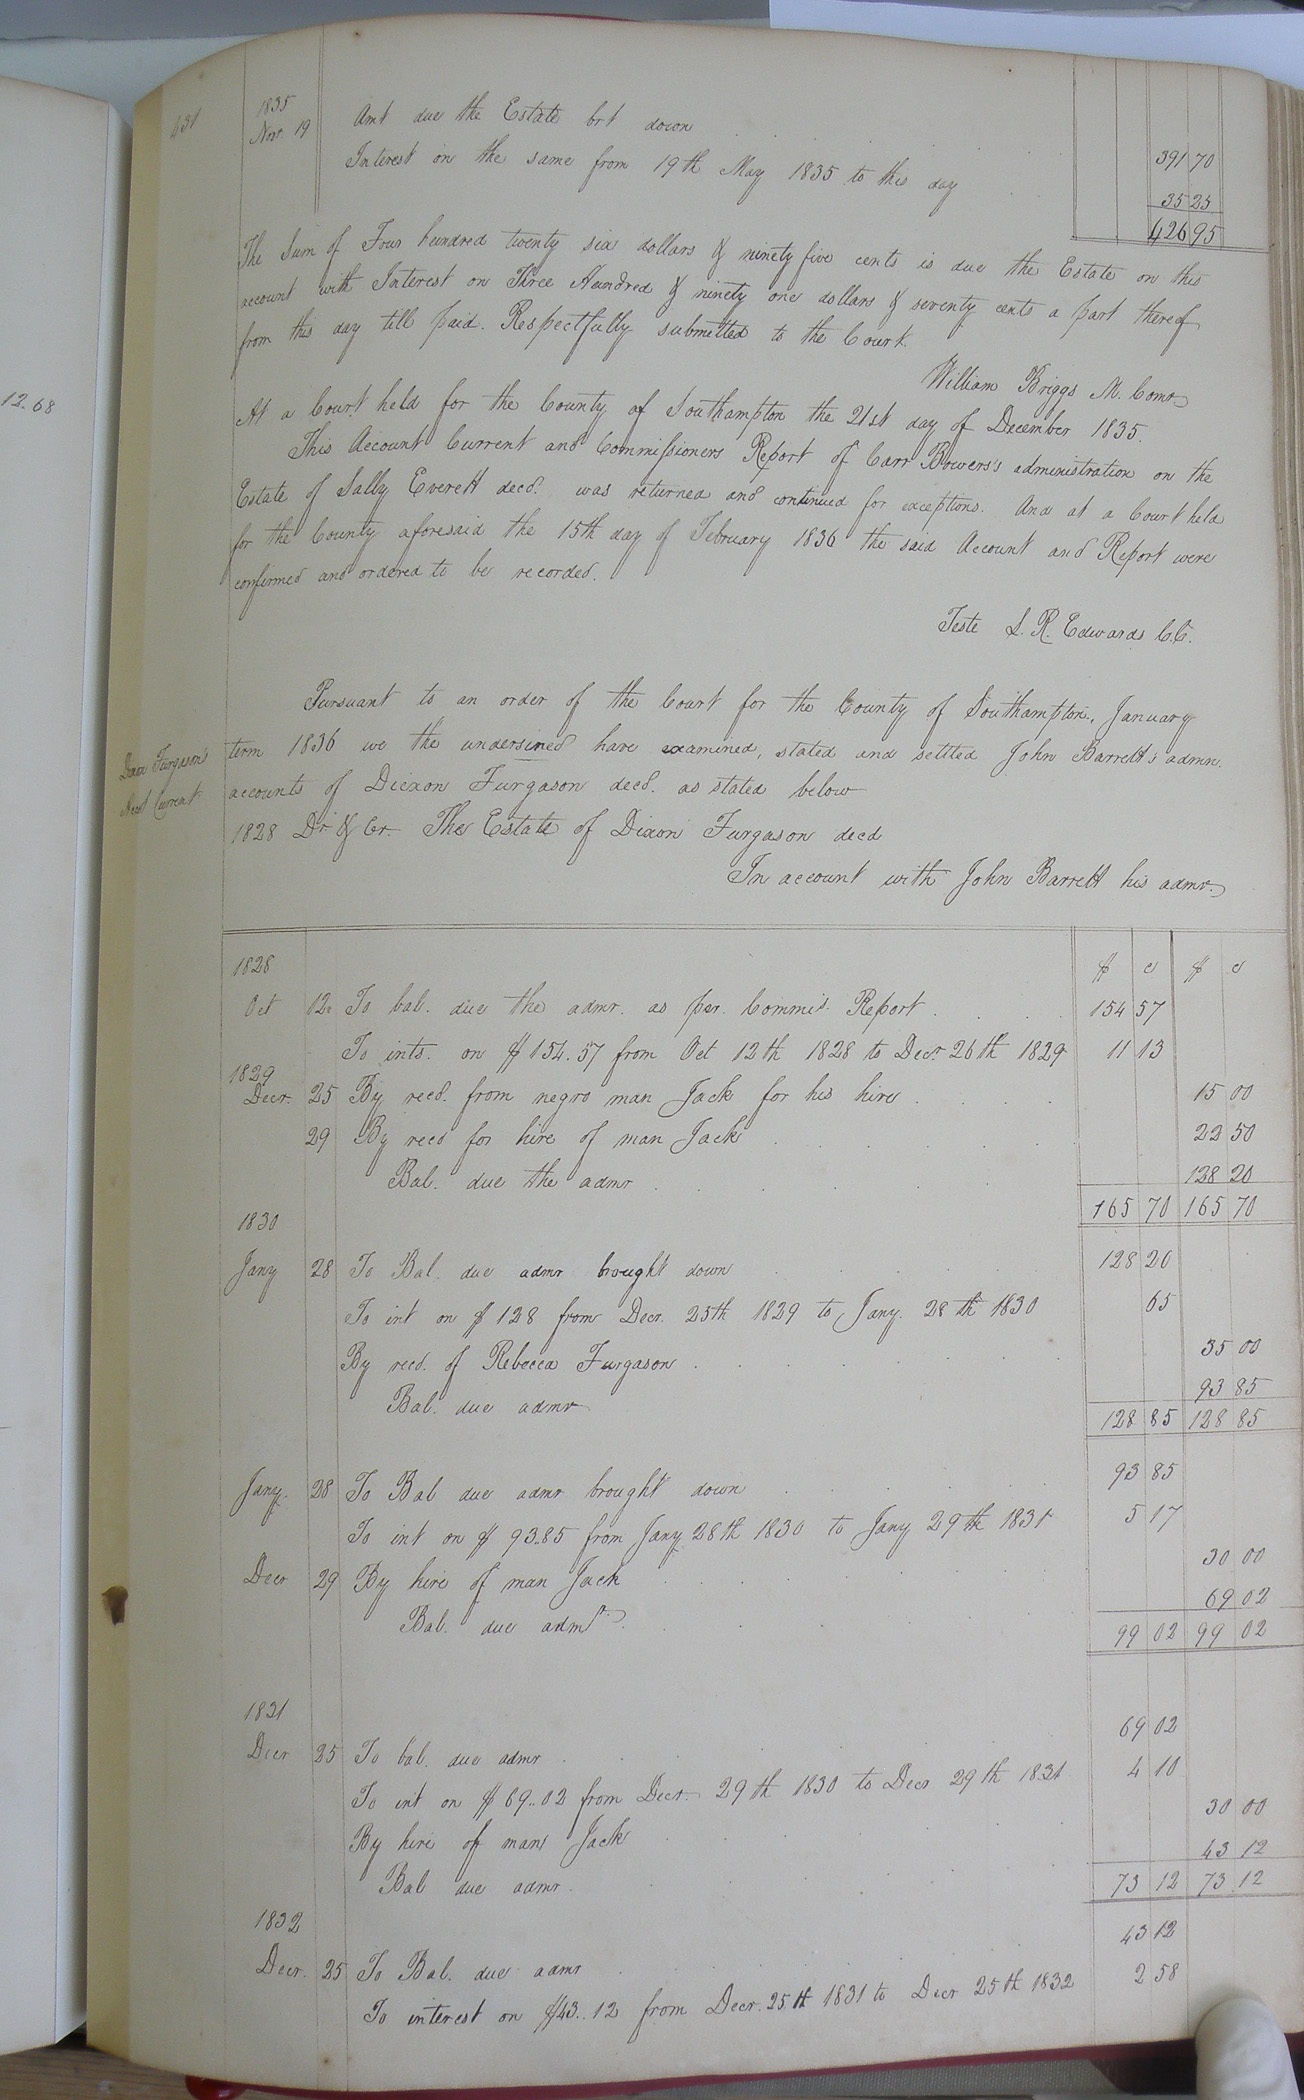 12.68
431
1835
Nov. 19 Amt due the Estate brt down 391 70
Interest on the same from 19th May 1835 to this day 35 25
426 95
The Sum of Four hundred twenty six dollars & ninety five cents is due the Estate on this
account with Interest on Three Hundred & ninety one dollars & seventy cents a part thereof
from this day till paid. Respectfully submitted to the Court.
William Briggs M. Comr
At a Court held for the County of Southampton the 21st day of December 1835.
This Account Current and Commissioners Report of Carr Bowers's administration on the
Estate of Sally Everett decd. was returned and continued for exceptions. And at a Court held
for the County aforesaid the 15th day of February 1836 the said Account and Report were
confirmed and ordered to be recorded.
Teste L. R. Edwards C.C.
Pursuant to an order of the Court for the County of Southampton, January
term 1836 we the undersined have examined, stated and settled John Barrett's admn.
accounts of Dicxon Furgason decd. as stated below
Dixon Furgason's
Acct Current
1828 Dr & Cr. The Estate of Dixon Furgason decd
In account with John Barrett his admr.
1828 $ c $ c
Oct 12 To bal. due the admr. as per. Commis. Report 154 57
To ints. on $154.57 from Oct 12th 1828 to Decr 26th 1829 11 13
1829
Decr. 25 By recd. from negro man Jack for his hire 15 00
29 By recd for hire of man Jack 22 50
Bal. due the admr 128 20
165 70 165 70
1830
Jany 28 To Bal. due admr brought down 128 20
To int on $128 from Decr. 25th 1829 to Jany. 28th 1830 65
By recd. of Rebecca Furgason 35 00
Bal. due admr 93 85
128 85 128 85
Jany. 28 To Bal due admr brought down 93 85
To int on $93.85 from Jany 28th 1830 to Jany 29th 1831 5 17
Decr 29 By hire of man Jack 30 00
Bal. due admr. 69 02
99 02 99 02
1831
Decr 25 To bal. due admr 69 02
To int on $69..02 from Decr. 29th 1830 to Decr 29th 1831 4 10
By hire of man Jack 30 00
Bal due admr. 43 12
73 12 73 12
1832
Decr. 25 To Bal. due admr 43 12
To interest on $43..12 from Decr. 25th 1831 to Decr 25th 1832 2 58